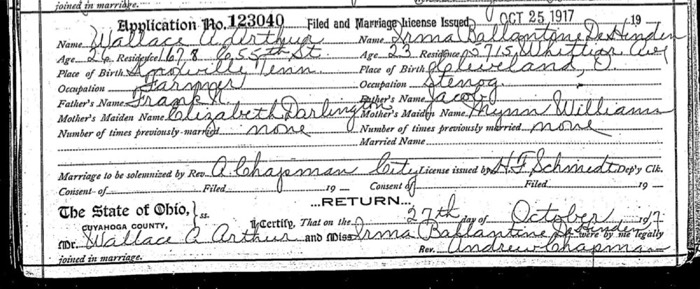 joined in marriage.
Application No. 123040 Filed and Marriage License Issued OCT 25 1917 19
Name Wallace A. Arthur Name Irma Ballantine
Age 26 Residence 1678 E 55th St. Age 23 Residence 5715 Whittier Ave
Place of Birth Tenn Place of Birth Cleveland, O
Occupation Farmer Occupation Stenog
Father's Name Frank Father's Name Jacob
Mother's Maiden Name Elizabeth Darlington Mother's Maiden Name Williams
Number of times previously married none Number of times previously married none
Married Name
Marriage to be solemnized by Rev. A. Chapman City License issued by H F Schmidt Dep'y Clk.
Consent of Filed 19 Consent of Filed 19
...RETURN...
The State of Ohio, } ss.
CUYAHOGA COUNTY, I Certify, That on the 27th day of October 1917
Mr. Wallace A Arthur and Miss Irma Ballantine were by me legally
joined in marriage. Rev. Andrew Chapman